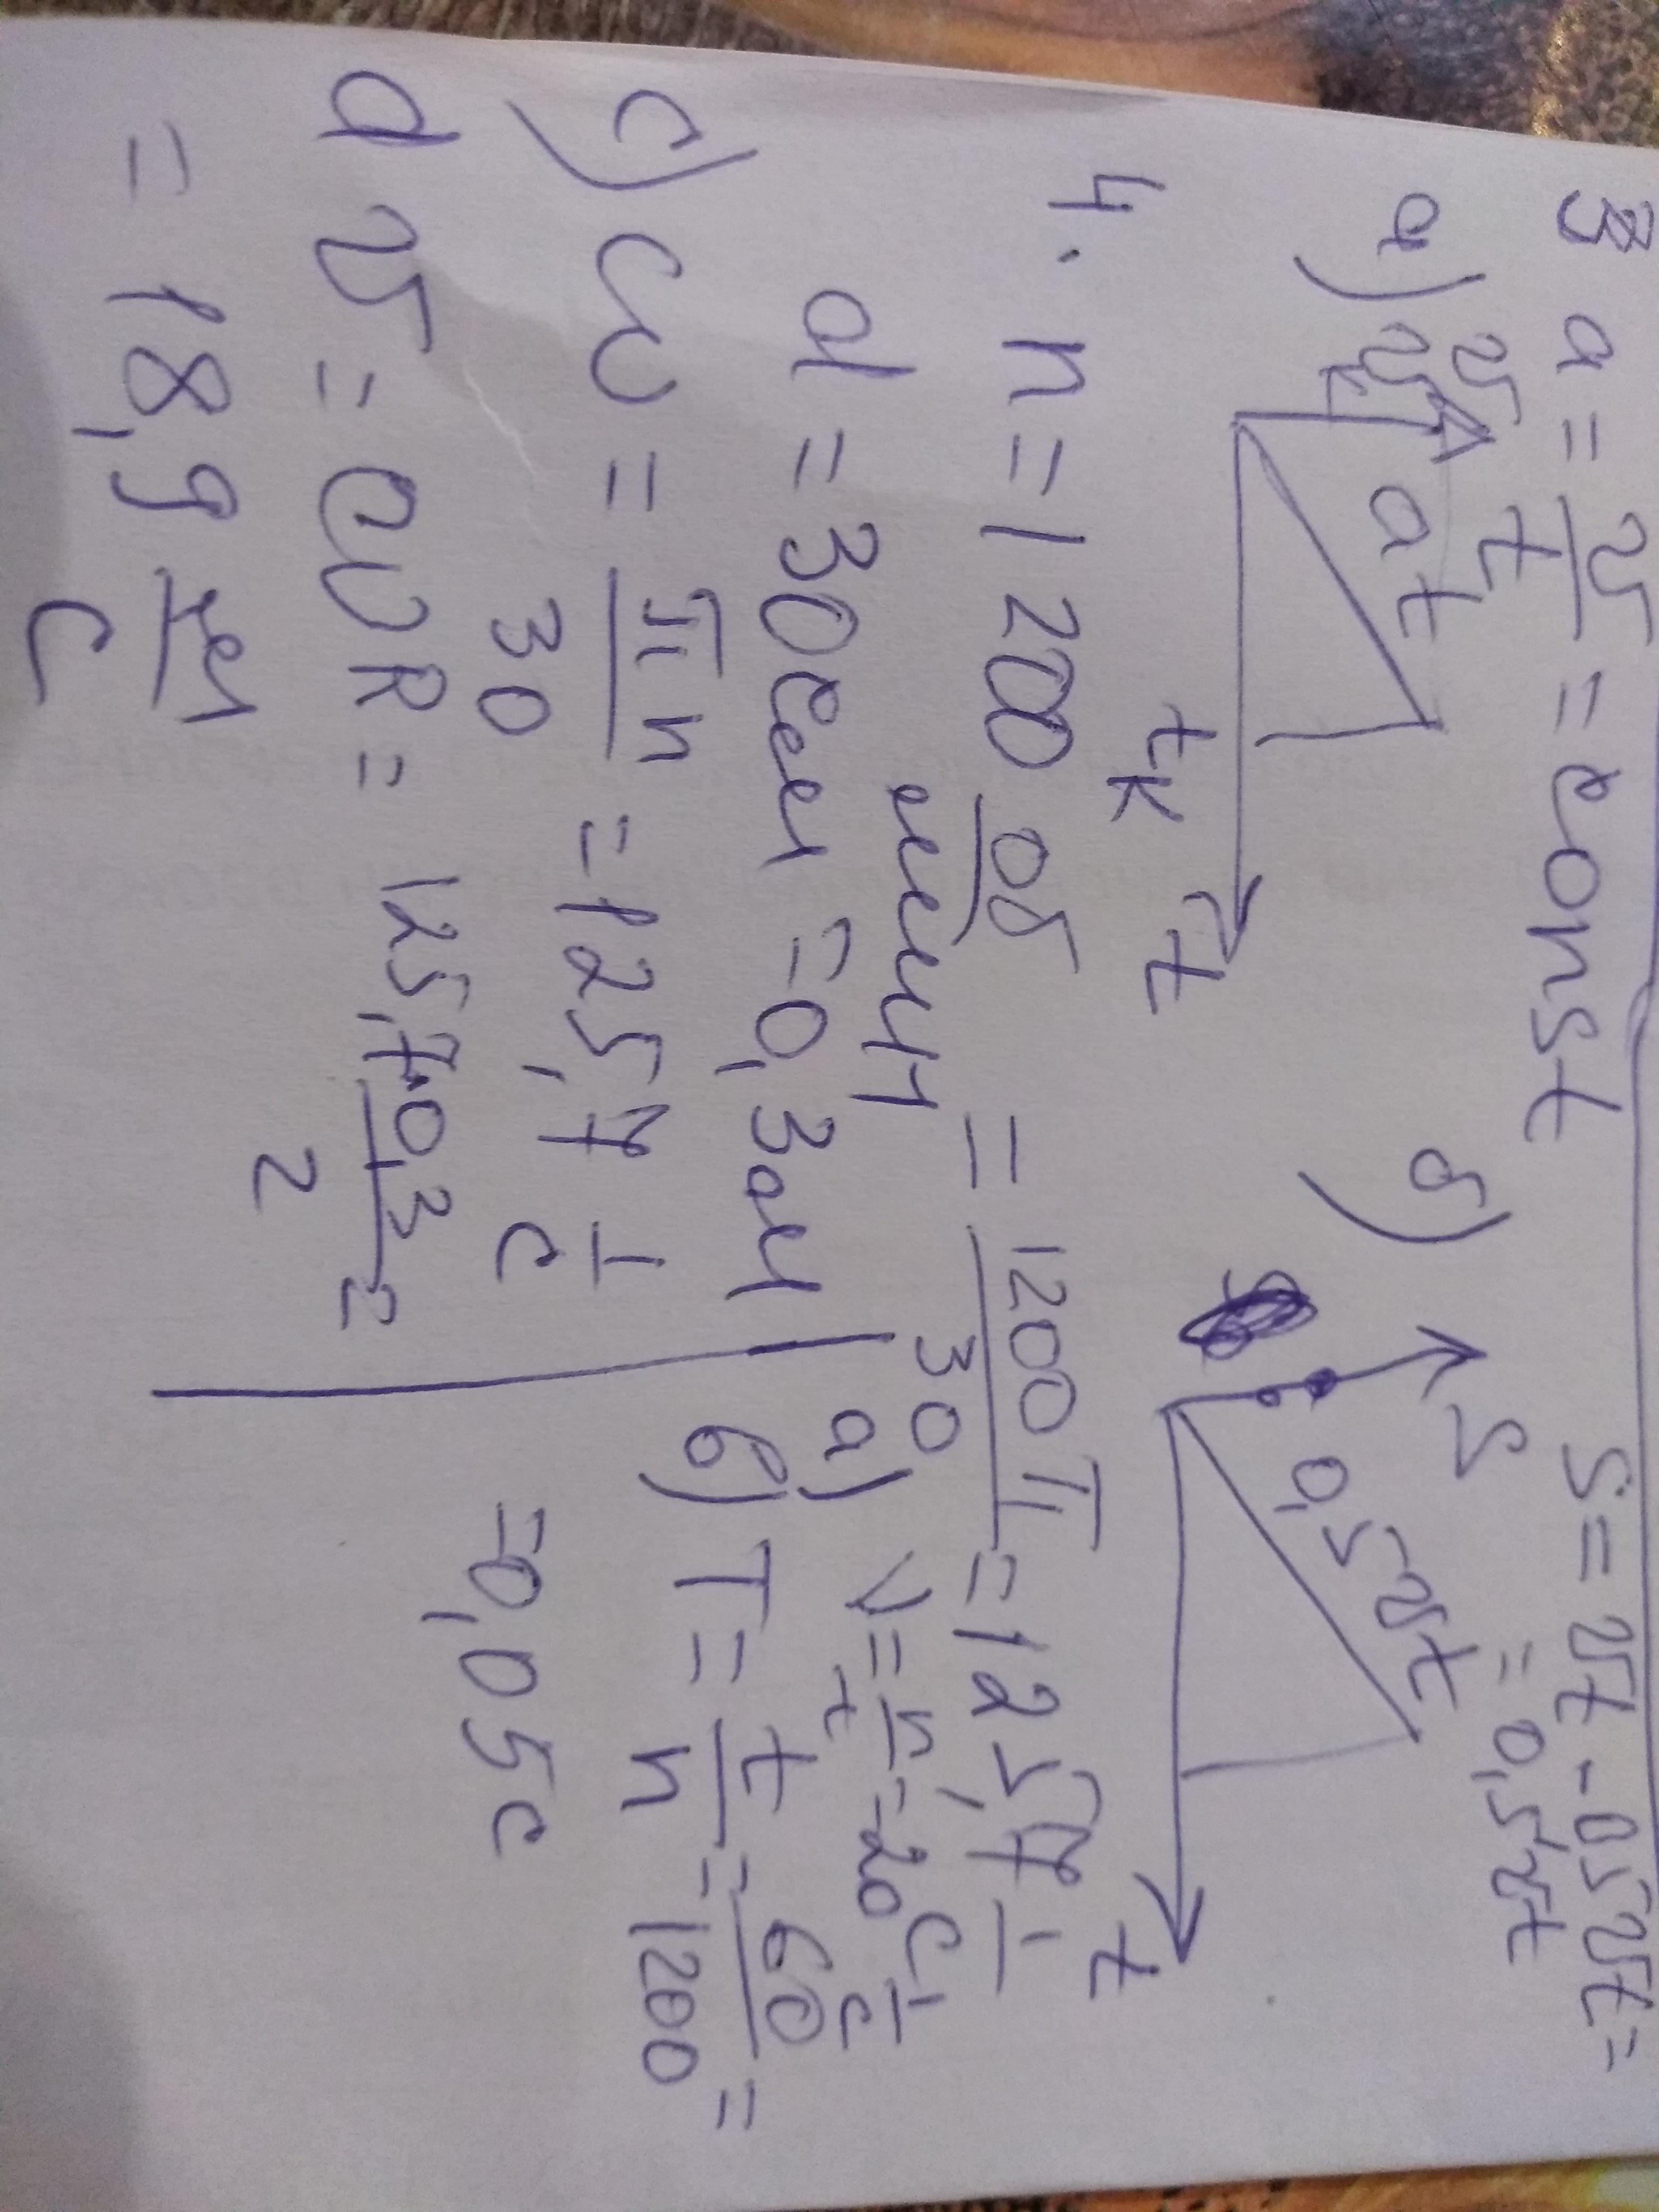 3 a = v/t = const
S = vt - 0,5vt =
= 0,5vt
а) v
vк
at
tк t
б) S
0,5vt
t
4. n = 1200 об/мин
= 1200π/30 = 125,7 1/с
d = 30см = 0,3м
а) ν = n/t = 20 1/с
c) ω = πn/30 = 125,7 1/с
б) T = t/n = 60/1200 =
= 0,05с
d v = ωR = 125,7·0,3/2 =
= 18,9 м/с